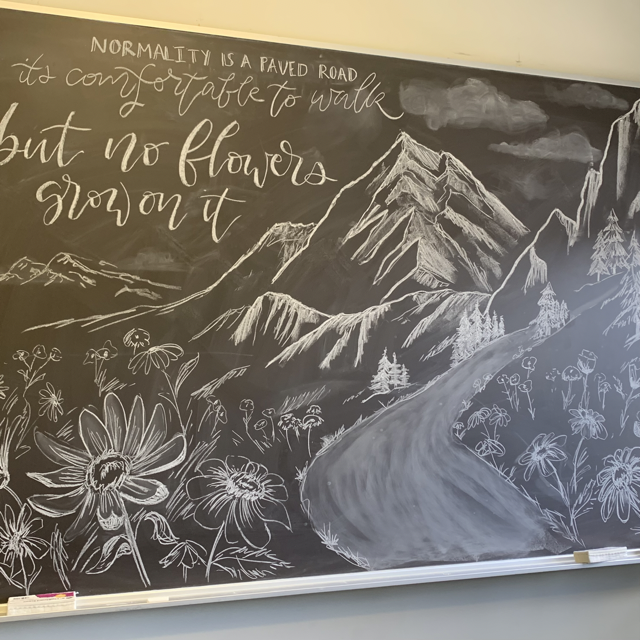 NORMALITY IS A PAVED ROAD
it's comfortable to walk
but no flowers
grow on it